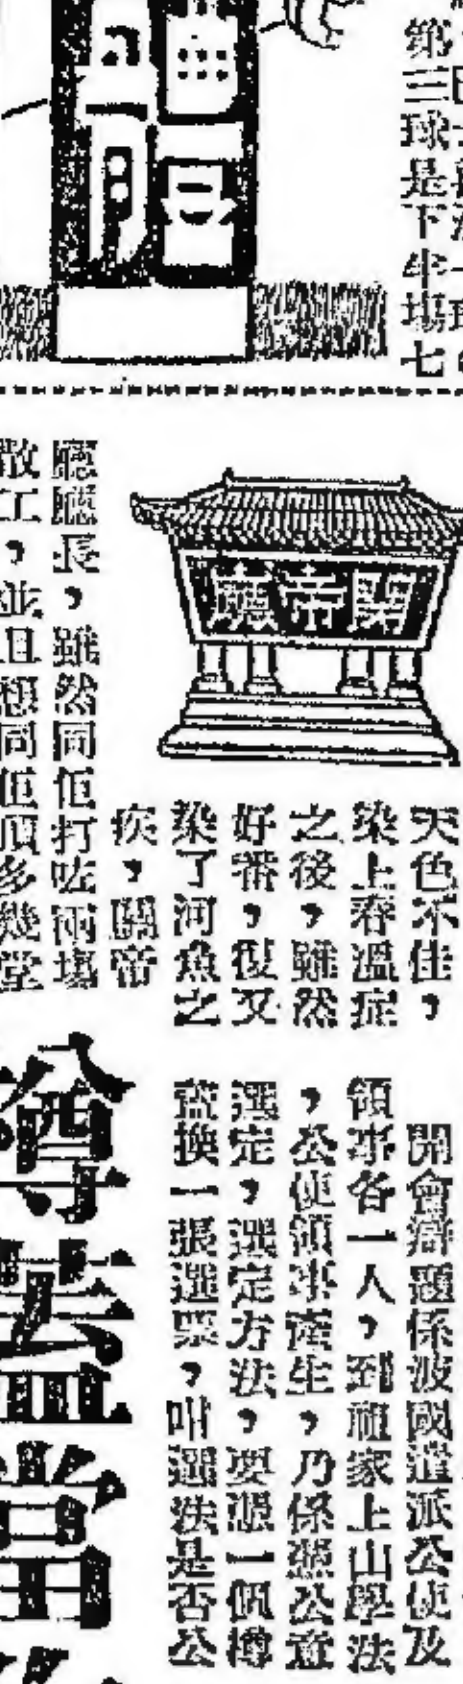 第三球是下牛場七
關帝廳
天色不佳，
染上春溫症
之後，雖然
好番，復又
染了河魚之
疾，關帝
廳廳長，雖然同佢打咗兩場
散工，並且想同佢頂多幾堂
開會辯題係波國遣派公使及
領事各一人，到龍家上山學法
，公使領事產生，乃係照公意
選定，選定方法，要憑一個樽
蓋換一張選票，咁選法是否公
樽蓋當